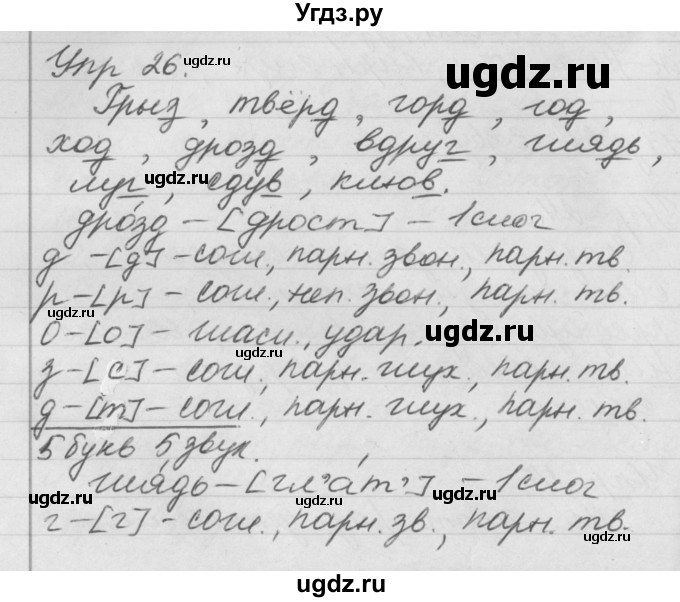 Угдз.ру
Упр 26.
ugdz.ru
ugdz.ru
Грыз, твёрд, горд, год,
ход, дрозд, вдруг, глядь,
луг, сдув, клюв.
ugdz.ru
ugdz.ru
дрозд – [дрост] – 1 слог
д – [д] – согл., парн. звон., парн. тв.
ugdz.ru
р – [р] – согл., неп. звон., парн. тв.
о – [о] – гласн., удар.
ugdz.ru
ugdz.ru
з – [с] – согл., парн. глух., парн. тв.
д – [т] – согл., парн. глух., парн. тв.
ugdz.ru
5 букв, 5 звук.
глядь – [гл'ат'] – 1 слог
ugdz.ru
г – [г] – согл., парн. зв., парн. тв.
ugdz.ru
ugdz.ru